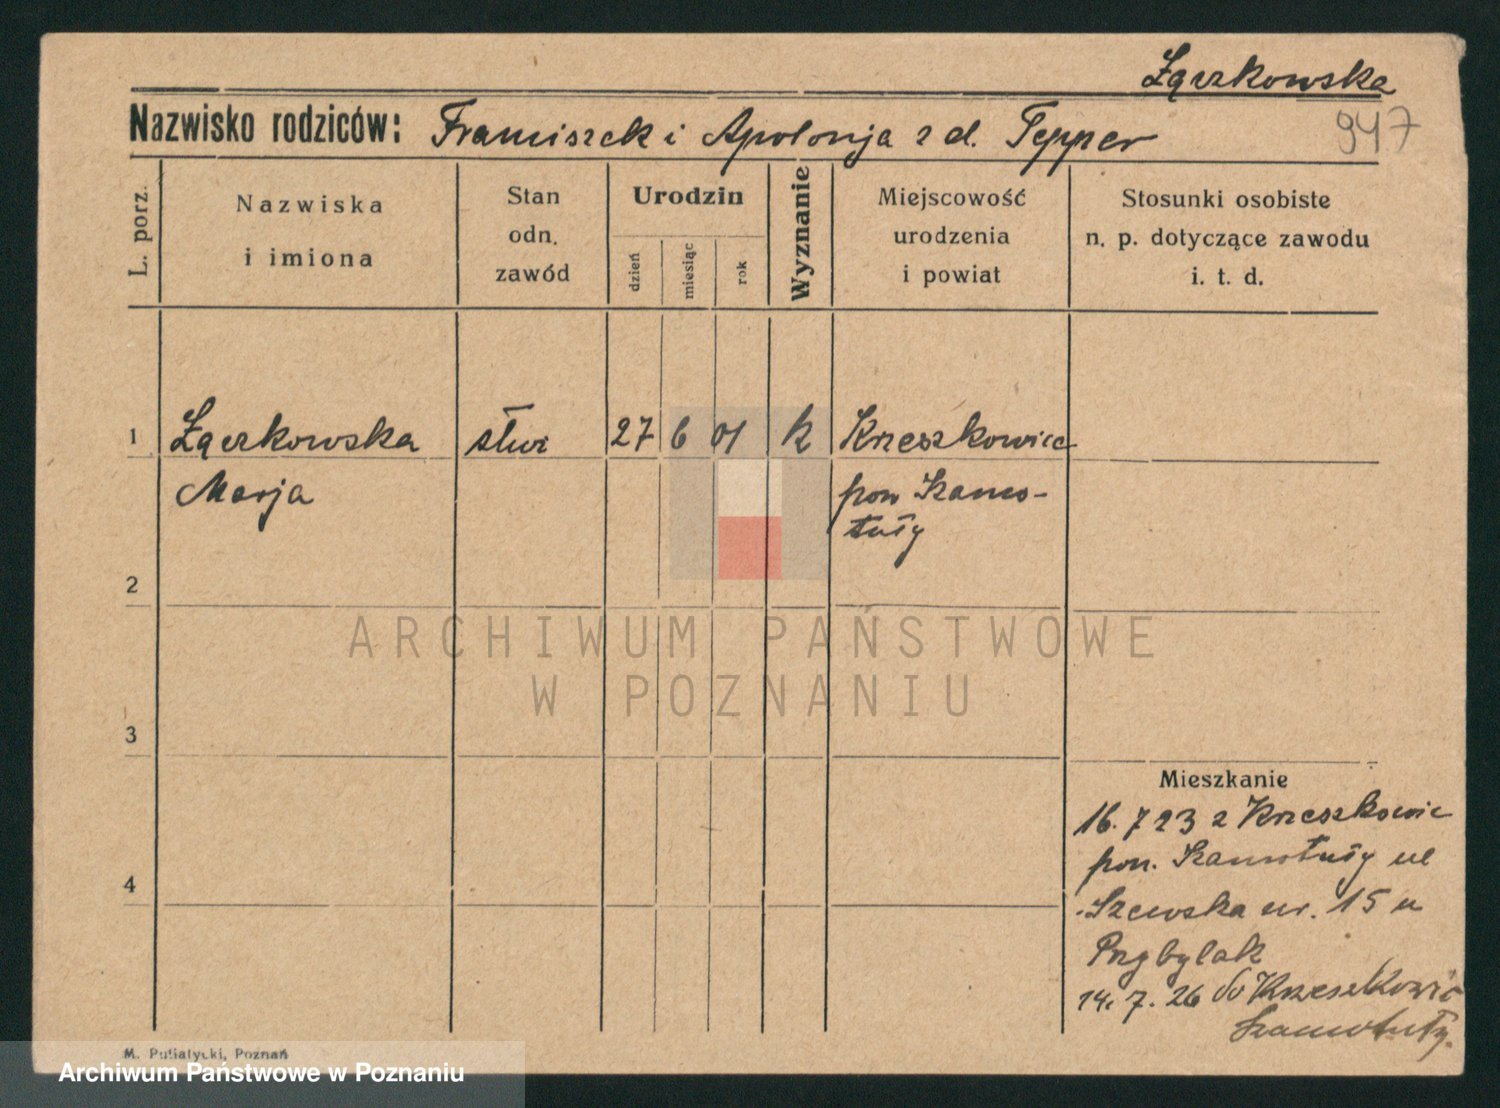 Łączkowska
Nazwisko rodziców: Franciszek i Apolonja z d. Tepper
947
L. porz.
Nazwiska
i imiona
Stan
odn.
zawód
Urodzin
dzień
miesiąc
rok
Wyznanie
Miejscowość
urodzenia
i powiat
Stosunki osobiste
n. p. dotyczące zawodu
i. t. d.
1 Łączkowska służ 27 6 01 k Krzeszkowice
Marja pow Szamo-
tuły
2
ARCHIWUM PAŃSTWOWE
W POZNANIU
3
Mieszkanie
16. 7 23 z Krzeszkowic
pow. Szamotuły ul
Szewska nr. 15 u
4
Przybylak
14. 7. 26 do Krzeszkowic
Szamotuły.
M. Putiatycki, Poznań
Archiwum Państwowe w Poznaniu